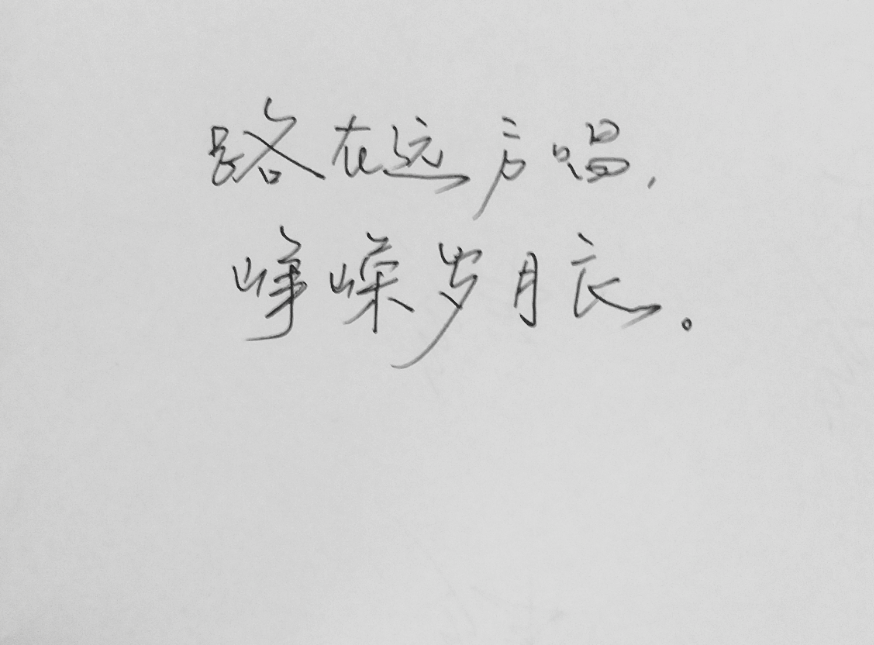 路在远方唱，
峥嵘岁月衣。